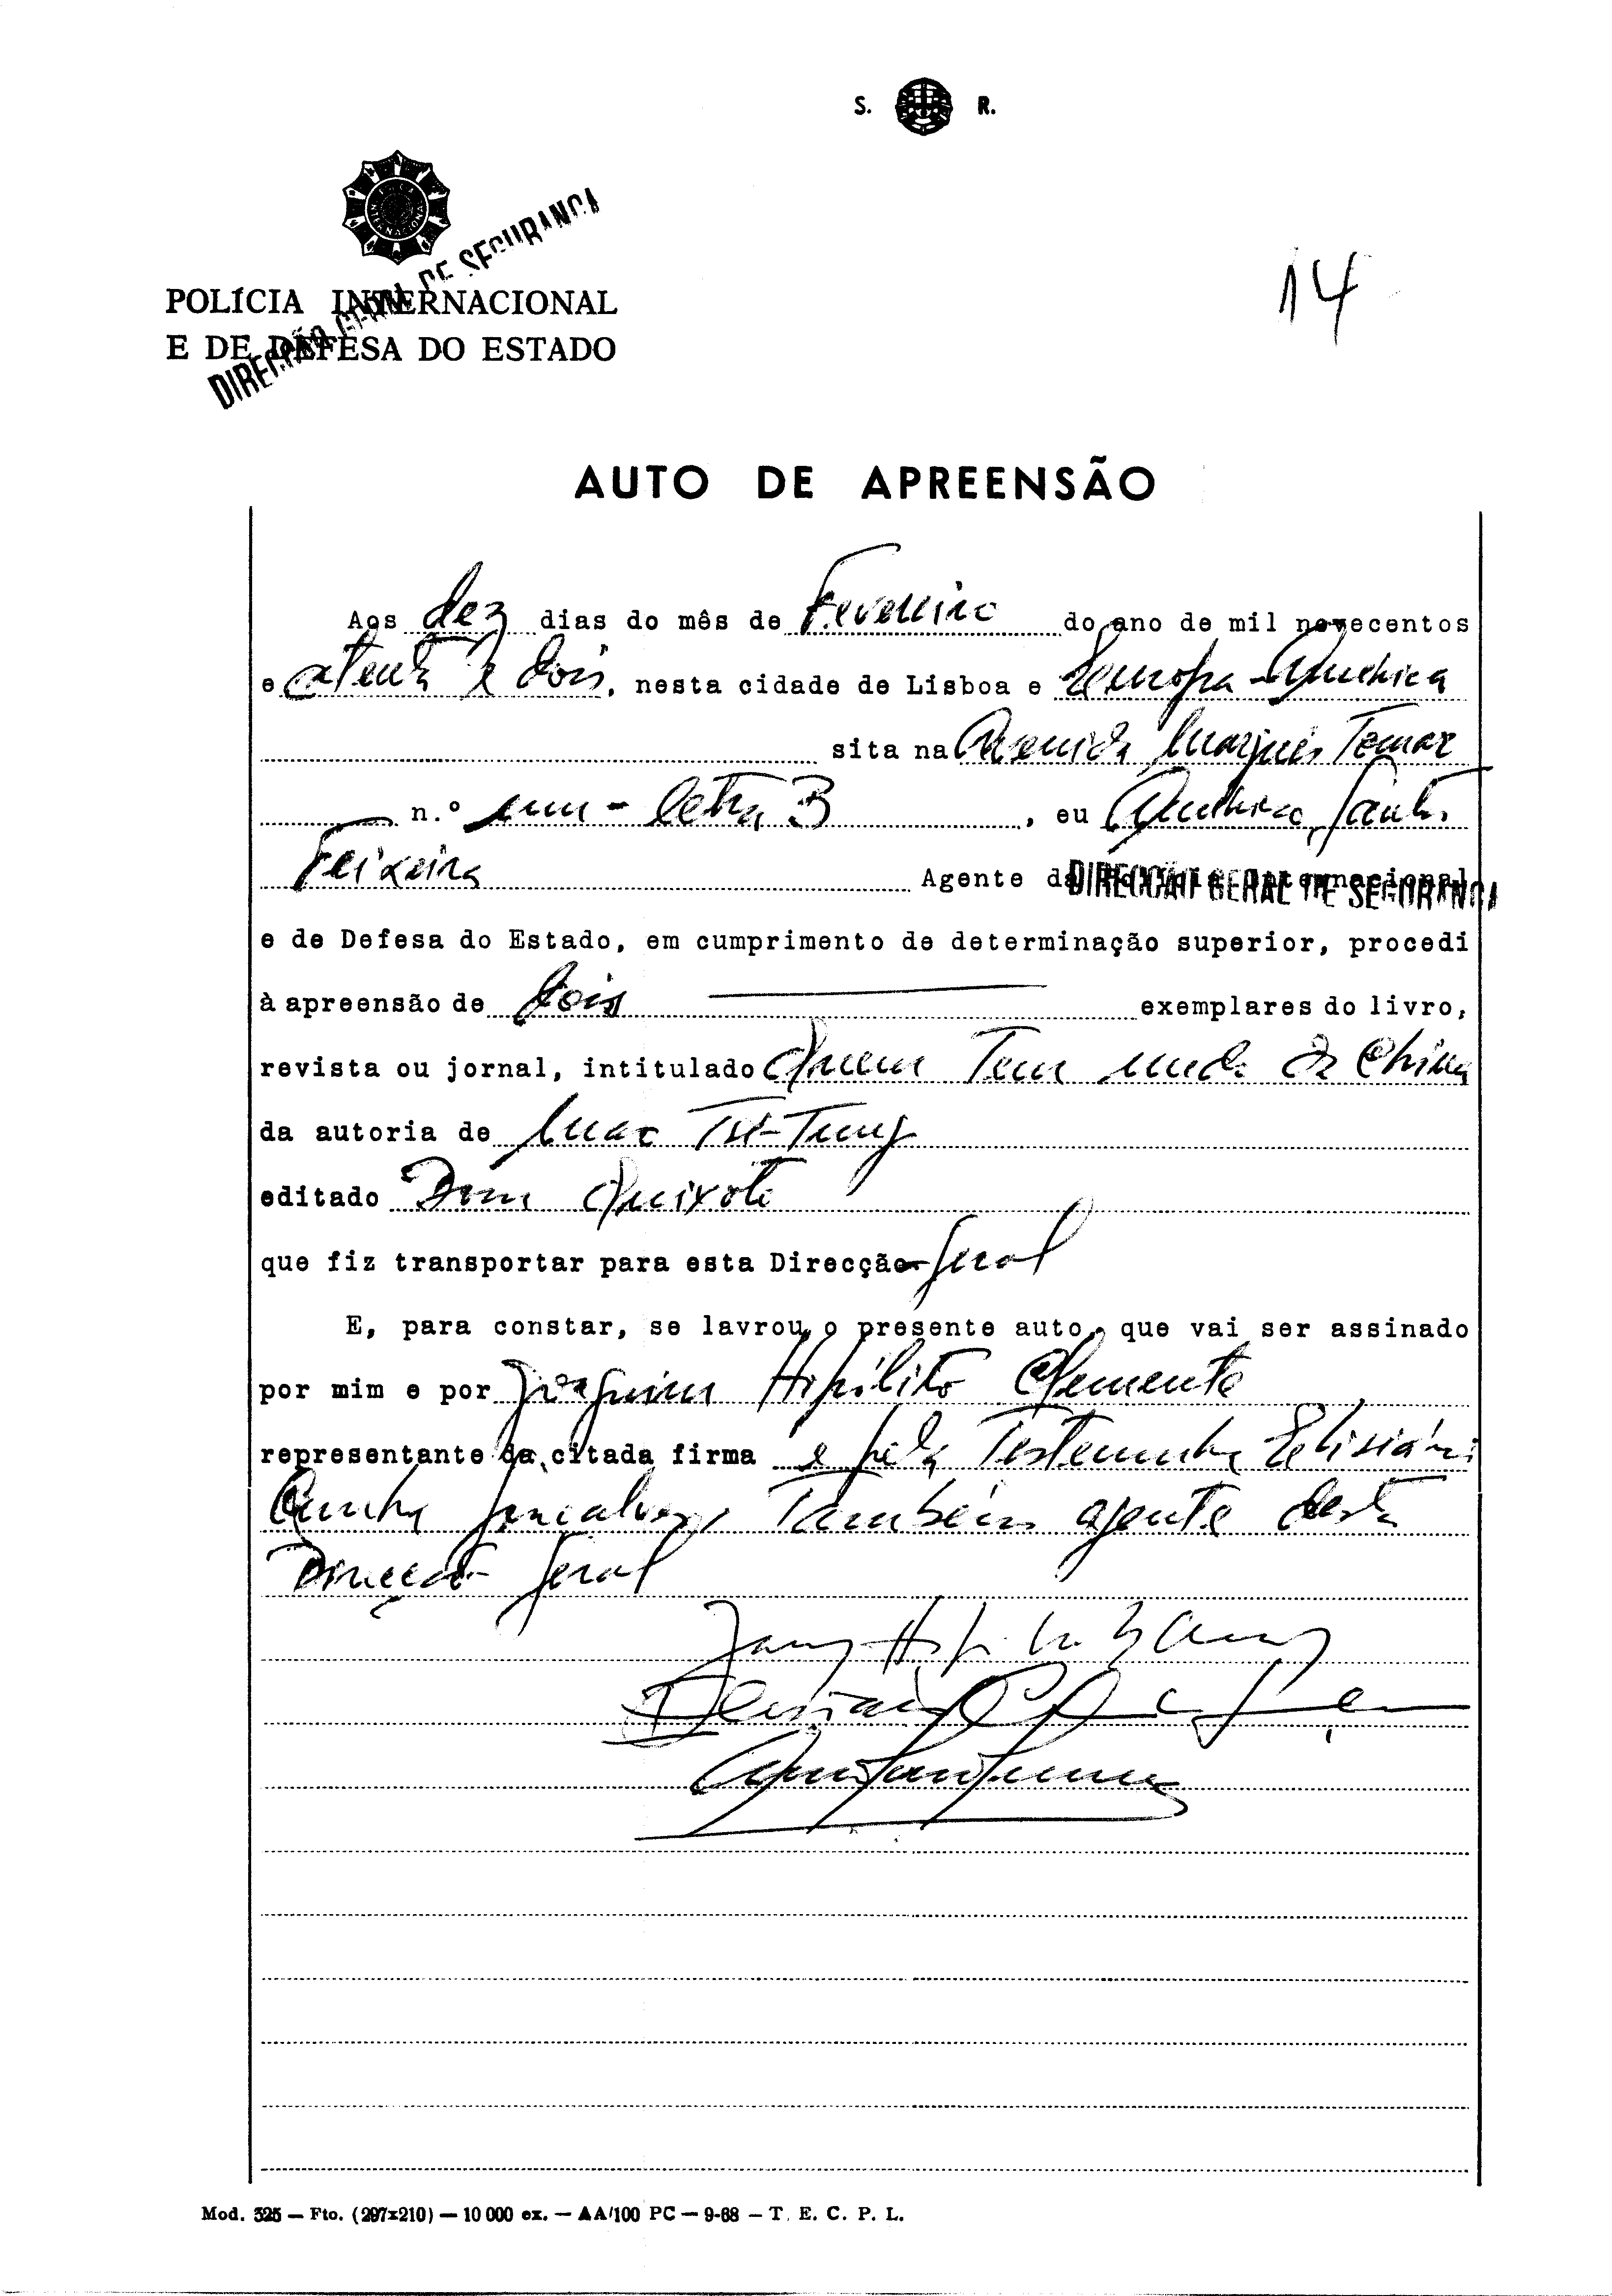 S. R.
DIRECÇÃO GERAL DE SEGURANÇA
POLÍCIA INTERNACIONAL
E DE DEFESA DO ESTADO
14
AUTO DE APREENSÃO
Aos dez dias do mês de Fevereiro do ano de mil novecentos
e setenta e dois, nesta cidade de Lisboa e Europa-América
sita na Avenida Marquês Tomar
n.º um - letra B, eu Américo Santos
Teixeira Agente da Polícia Internacional
DIRECÇÃO GERAL DE SEGURANÇA
e de Defesa do Estado, em cumprimento de determinação superior, procedi
à apreensão de dois exemplares do livro,
revista ou jornal, intitulado Quem Tem medo da China
da autoria de Mao Tsé-Tung
editado Dom Quixote
que fiz transportar para esta Direcção-Geral
E, para constar, se lavrou o presente auto, que vai ser assinado
por mim e por Joaquim Hipólito Clemente
representante da citada firma e pela Testemunha Elisiário
Cunha Gonçalves, Também agente desta
Direcção Geral
Mod. 325 — Fto. (297x210) — 10 000 ex. — AA/100 PC — 9-68 — T. E. C. P. L.